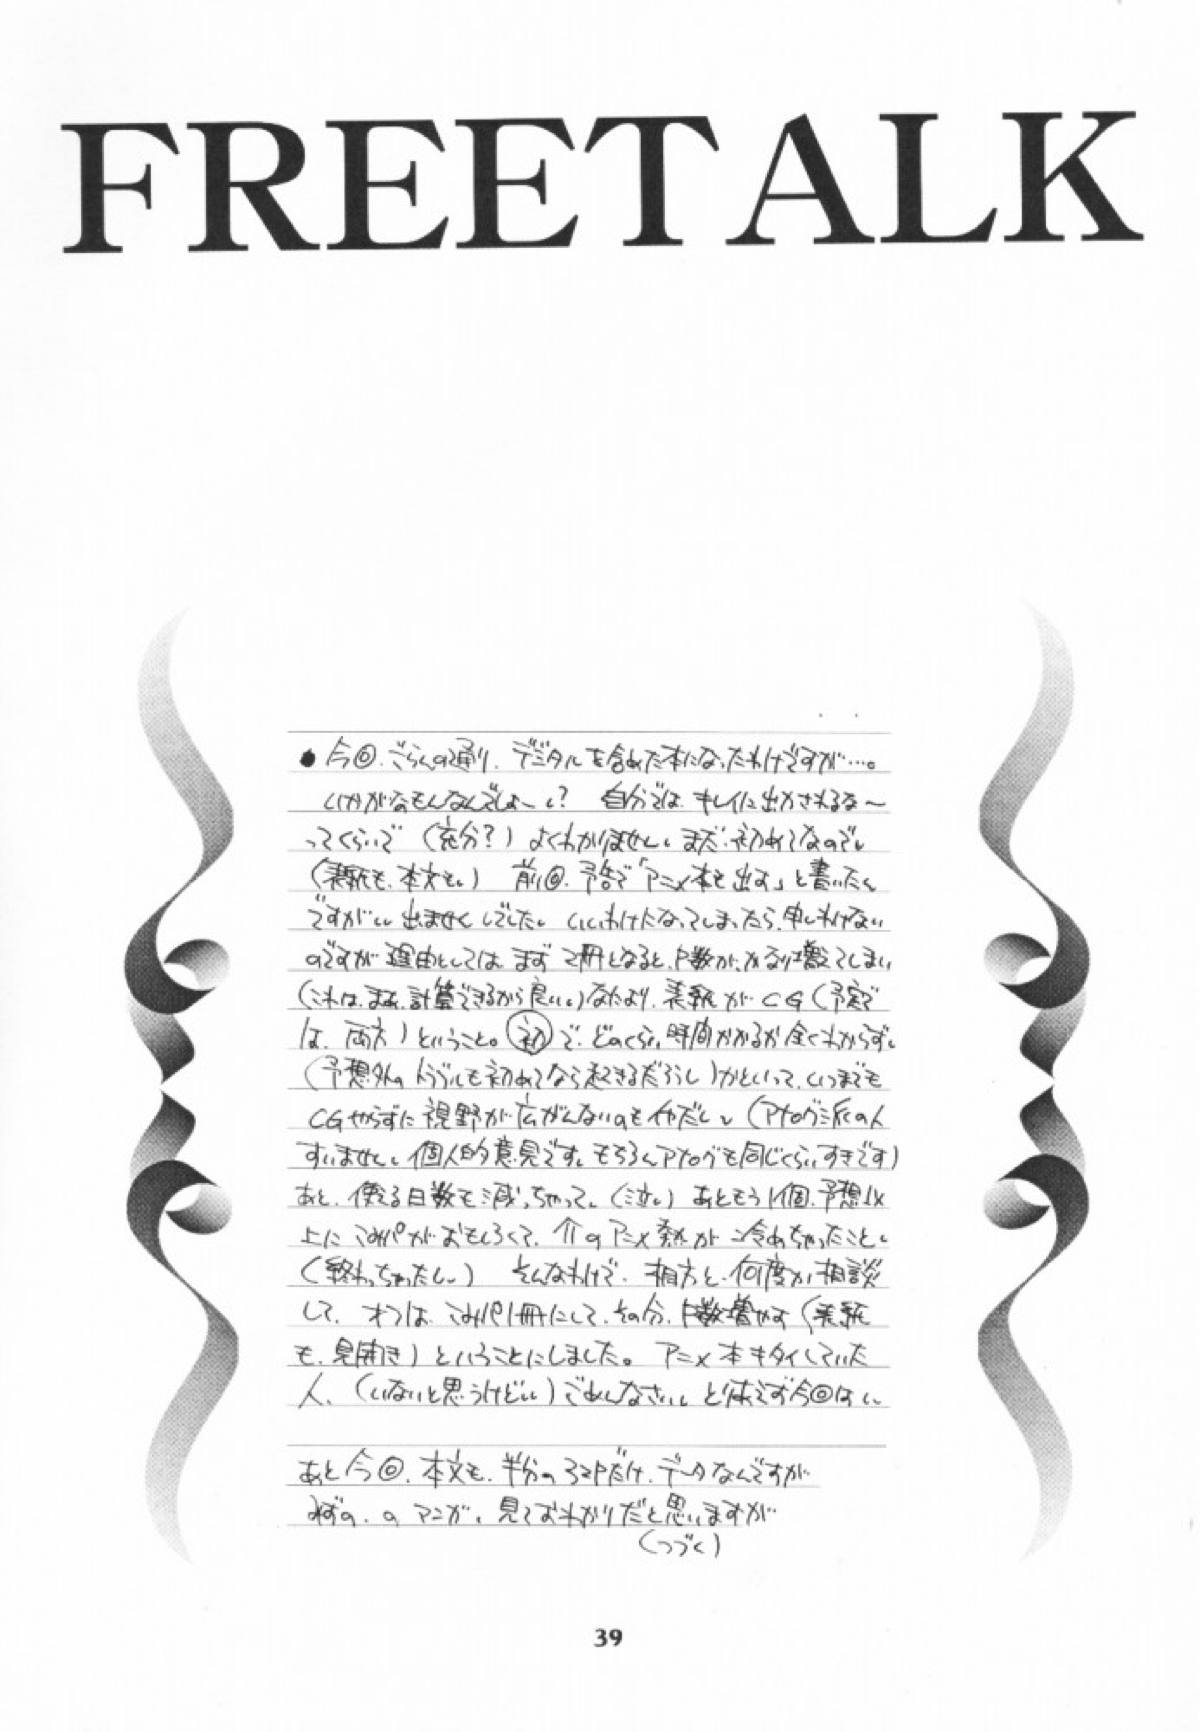 FREETALK
●今回、ごらんの通り、デジタルを含めた本になったわけですが…。
いかがなもんなんでしょーか? 自分では、キレイに出かされるな〜
ってくらいで(充分?)よくわかりません。まだ、初めてなので。
(表紙も、本文も。) 前回、予告で「アニメ本を出す」と書いたん
ですが、出ませんでした。いいわけになってしまったら、申しわけない
のですが理由としては、まず2冊となると、P数が、かなり増えてしまい
(これは、まあ、計算できるから良い。)なにより、表紙がCG(予定で
は、両方)ということ。初で、どのくらい時間かかるか全くわからず。
(予想外のトラブルも初めてなら起きるだろうし)かといって、いつまでも
CGやらずに視野が広がんないのもイヤだし。(アナログ派の人
すいません。個人的意見です。もちろんアナログも同じくらいすきです)
あと、使える日数も減っちゃって。(泣) あともう1個、予想以
上にこみパがおもしろくて、介のアニメ熱が冷めちゃったこと。
(終わっちゃったし) そんなわけで、相方と、何度か相談
して、オフは、こみパ1冊にして、その分、P数増やす(表紙
も、見開き)ということにしました。アニメ本キタイしていた
人、(いないと思うけど)ごめんなさい。とりあえず今回は
あと今回、本文も、半分の32Pだけ、データなんですが
みずの、のマンガ、見ておわかりだと思いますが
(つづく)
39